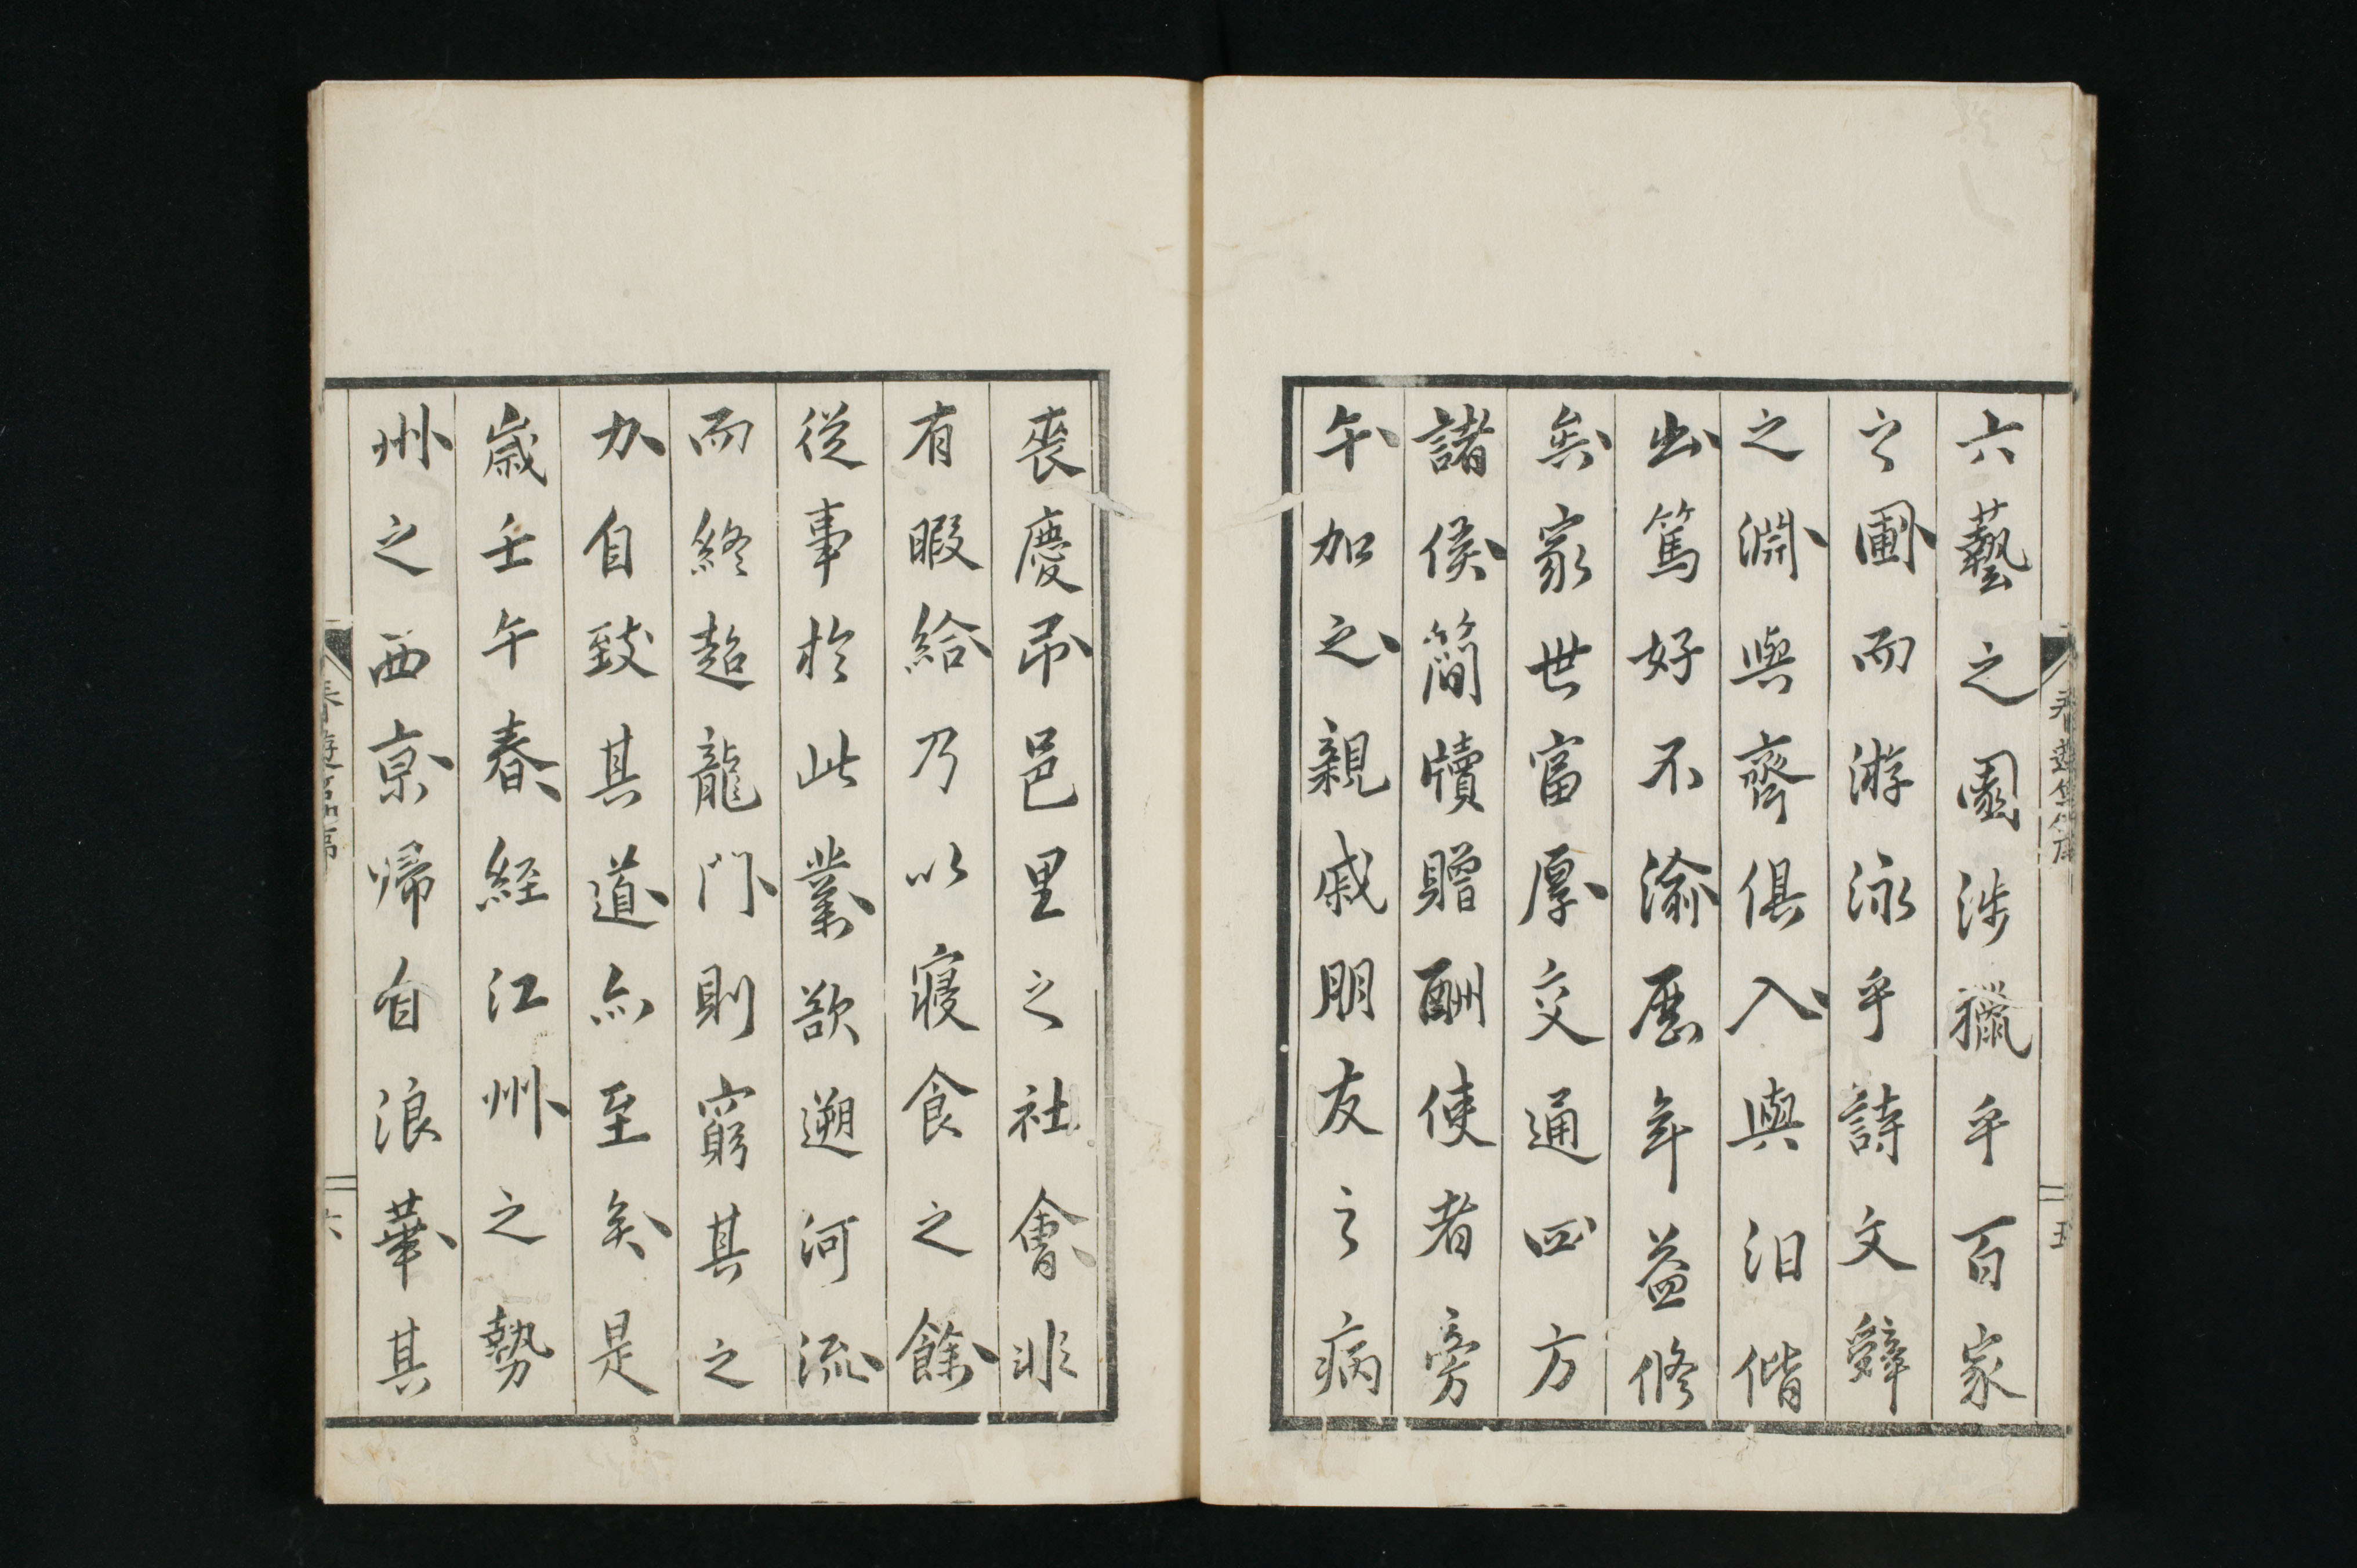 六藝之園涉獵乎百家
之圃而游泳乎詩文辭
之淵與齊俱入與汩偕
出篤好不渝歷年益修
矣家世富厚交通四方
諸侯簡牘贈酬使者旁
午加之親戚朋友之病
喪慶弔邑里之社會非
有暇給乃以寢食之餘
從事於此業欲遡河流
而終超龍門則窮其之
力自致其道亦至矣是
歲壬午春經江州之勢
州之西京歸自浪華其